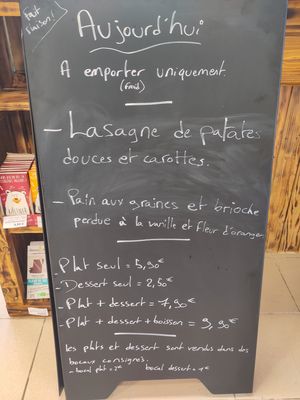 Fait
maison!
Aujourd'hui
A emporter uniquement.
(froid)
- Lasagne de patates
douces et carottes.
- Pain aux graines et brioche
perdue à la vanille et fleur d'oranger
- Plat seul = 5,90€
- Dessert seul = 2,50€
- Plat + dessert = 7,90€
- Plat + dessert + boisson = 9,90€
les plats et dessert sont vendus dans des
bocaux consignés.
- bocal plat = 2€ bocal dessert = 1€